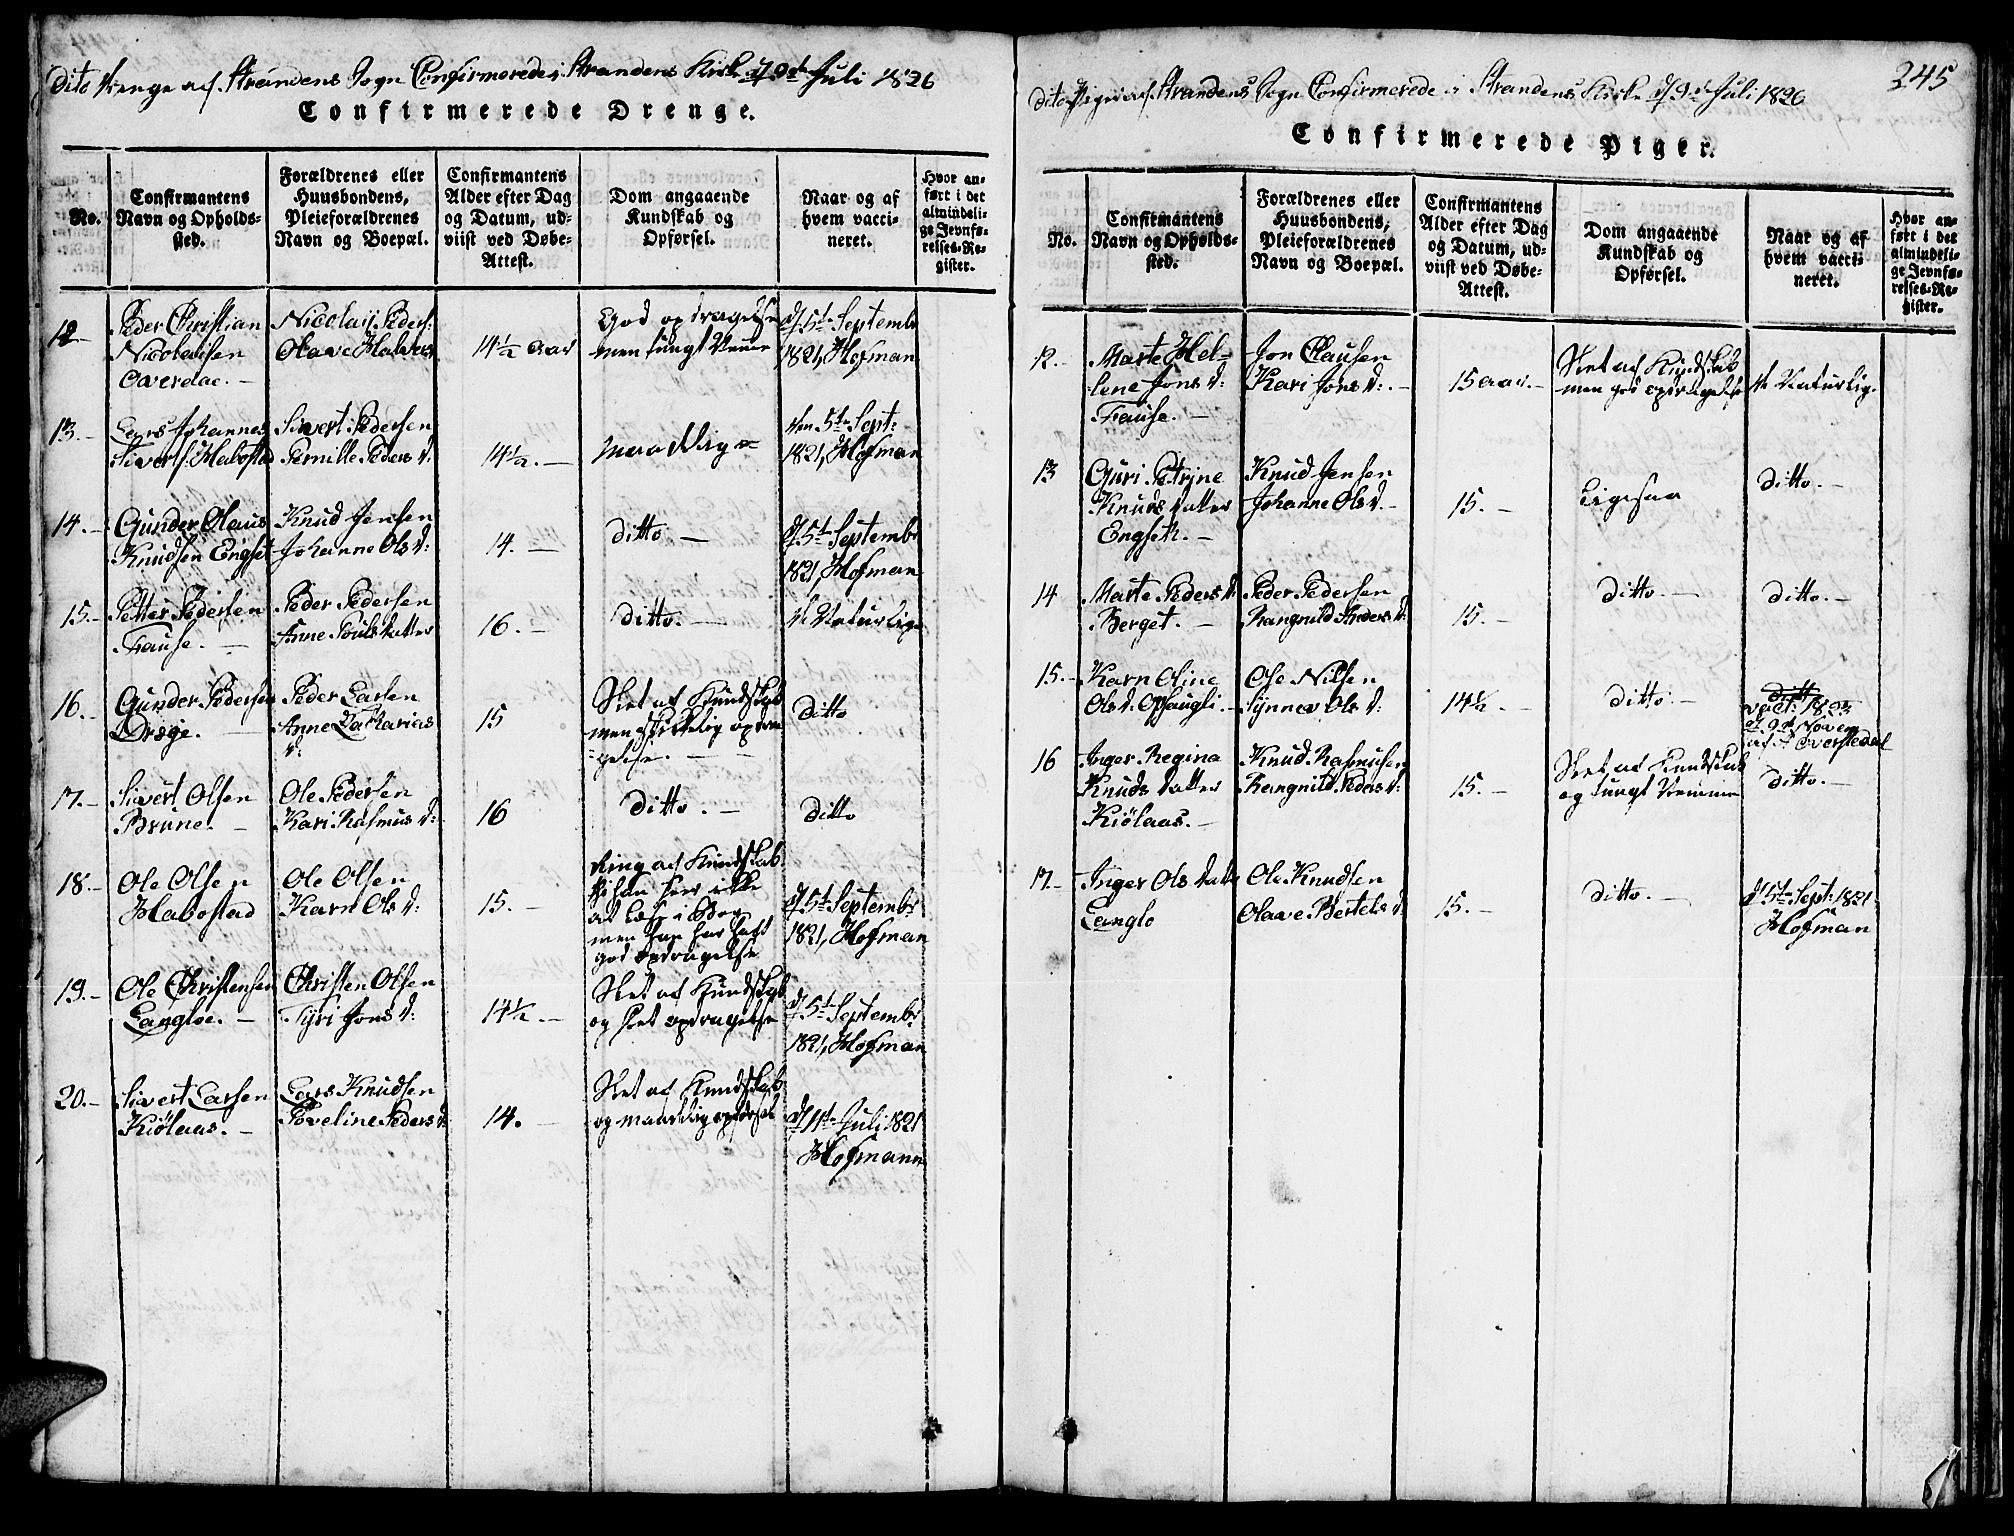 dito Drenge af Strandens Sogn Confirmerede i Strandens Kirke d 9de Juli 1826
Confirmerede Drenge.
No.
Confirmantens
Navn og Opholds-
sted.
Forældrenes eller
Huusbondens,
Pleieforældrenes
Navn og Boepæl.
Confirmantens
Alder efter Dag
og Datum, ud-
viist ved Døbe-
Attest.
Dom angaaende
Kundskab og
Opførsel.
Naar og af
hvem vacci-
neret.
Hvor an-
ført i det
almindeli-
ge Jevnfø-
relses-Re-
gister.
12
Peder Christian
Nicolaisen
Overdae.
Nicolaij Peders:
Olave Halvors
14½ aar
God opdragelse
men tungt Nemme
d 5te Septembr
1821, Hofman
13.
Lars Johannes
Sivert s. Habostad
Sivert Pedersen
Pernille Peders d.
14½.
maadelig
den 5te Sept:
1821, Hofman
14.
Gunder Olaus
Knudsen Engset
Knud Jensen
Johanne Ols d:
14.
ditto
d 5te Septembr
1821, Hofman
15.
Petter Pedersen
Frause.
Peder Pedersen
Anne Pouls datter
16.
ditto.
d: Naturlige
16.
Gunder Pedersen
Dræge.
Peder Larsen
Anne Zacharias
d:
15
Slet af Kundskab
men skikkelig opdra
gelse.
Ditto
17.
Sivert Olsen
Brune.
Ole Pedersen
Kari Rasmus d:
16
Ditto.
Ditto
18.
Ole Olsen
Habostad
Ole Olsen
Karn Ols d:
15.
Ring af Kundskab
thi han har ikke
at læse i Bog
men han har haft
god opdragelse
d 5te Septembr
1821, Hofman
19.
Ole Christensen
Langloe.
Christen Olsen
Syri Jons d:
14½.
Slet af Kundskab
og slet opdragelse
d 5te Septembr
1821, Hofman
20.
Sivert Larsen
Kiölaas.
Lars Knudsen
Poveline Peders d:
14.
Slet af Kundskab
og maadelig opførsel
d 11te Juli 1821
Hofmann
245
dito Piger af Strandens Sogn Confirmerede i Strandens Kirke d 9de Juli 1826
Confirmerede Piger.
No.
Confirmantens
Navn og Opholds-
sted.
Forældrenes eller
Huusbondens,
Pleieforældrenes
Navn og Boepæl.
Confirmantens
Alder efter Dag
og Datum, ud-
viist ved Døbe-
Attest.
Dom angaaende
Kundskab og
Opførsel.
Naar og af
hvem vacci-
neret.
Hvor an-
ført i det
almindeli-
ge Jevnfø-
relses-Re-
gister.
12.
Marte Hel-
lene Jons d:
Frause.
Jon Clausen
Kari Jons d:
15 aar.
Slet af Kundskab
men god opdragelse
d: Naturlig.
13
Guri Petrine
Knuds datter
Engseth.
Knud Jensen
Johanne Ols d.
15.
Ligesaa
Ditto.
14
Marte Peders d
Berget.
Peder Pedersen
Rangnild Anders d:
15.
Ditto.
Ditto.
15.
Karn Oline
Ols d. Opsaugli.
Ole Nilsen
Synnev Ols d:
14½
Ditto.
ditto
vact: 1823
d 2de Novem
af A Overstedal
16
Inger Regina
Knuds datter
Kiölaas.
Knud Rasmusen
Rangnild Peders d:
15.
Slet af Kundskab
og tungt Nemme
Ditto.
17.
Inger Ols datt
Langlo
Ole Knudsen
Olave Bertels d:
15.
Ditto.
d 5te Sept: 1821.
Hofman